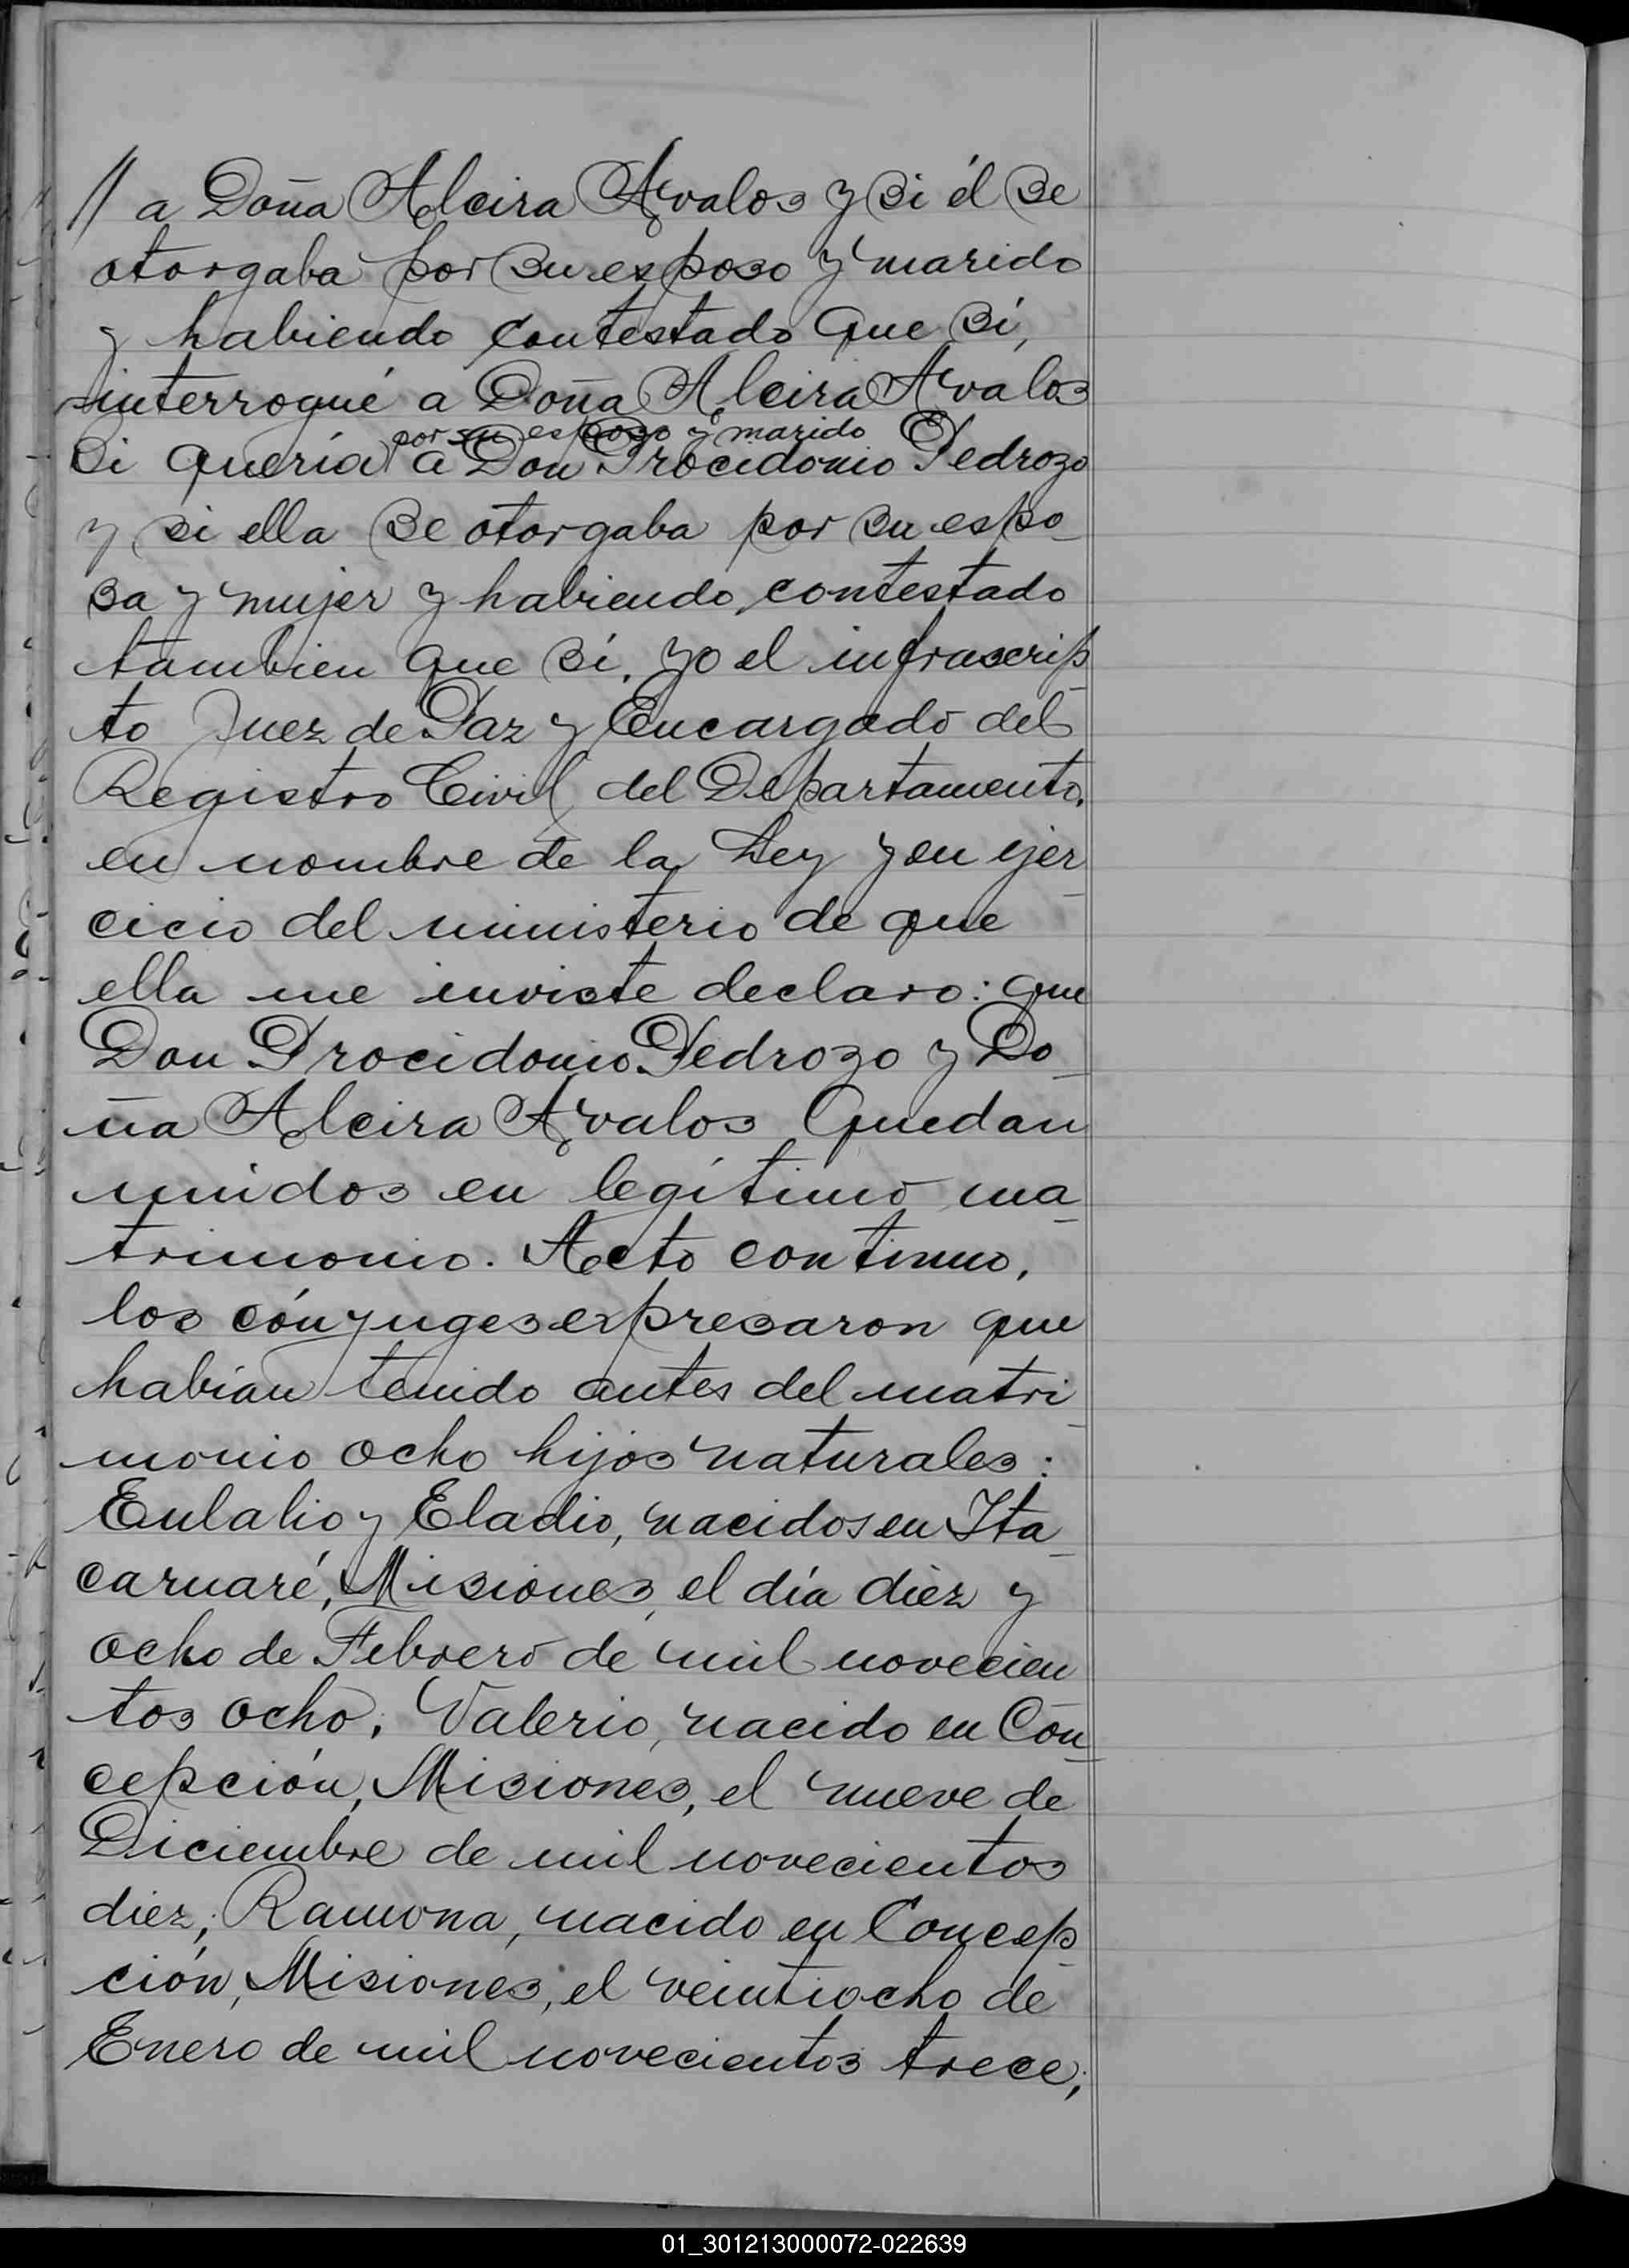 // a Doña Alcira Avalos y si él se
otorgaba por su esposo y marido
y habiendo contestado que sí,
interrogué a Doña Alcira Avalos
por su esposo y marido
si quería a Don Procidonio Pedrozo
y si ella se otorgaba por su espo_
sa y mujer y habiendo contestado
tambien que sí, yo el infrascrip_
to Juez de Paz y Encargado del
Registro Civil del Departamento,
en nombre de la Ley y en ejer_
cicio del ministerio de que
ella me inviste declaro: que
Don Procidonio Pedrozo y Do_
ña Alcira Avalos quedan
unidos en legítimo ma_
trimonio. Acto continuo,
los cónyuges expresaron que
habían tenido antes del matri_
monio ocho hijos naturales:
Eulalio y Eladio, nacidos en Ita_
caruaré, Misiones, el día diez y
ocho de Febrero de mil novecien
tos ocho; Valerio, nacido en Con_
cepción, Misiones, el nueve de
Diciembre de mil novecientos
diez; Ramona, nacido en Concep_
ción, Misiones, el veintiocho de
Enero de mil novecientos trece;
01_301213000072-022639